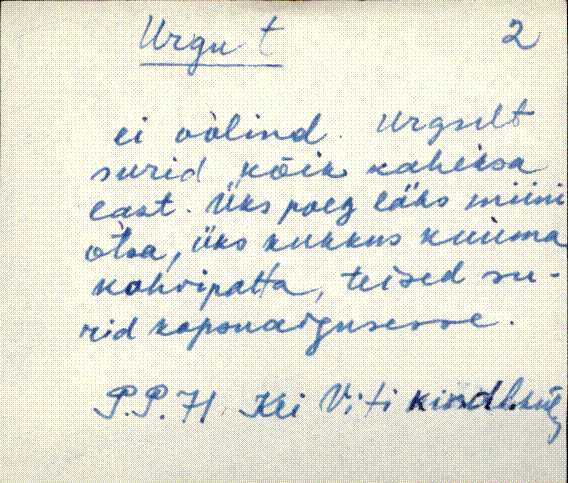 Urgu t 2
ei võlind. Urgselt
surid kõik kaheksa
last. Üks poeg läks miini
otsa, üks kukkus kuuma
kohvipatta, teised su-
rid kopsuaigusesse.
P.P. 71. Kei Viti